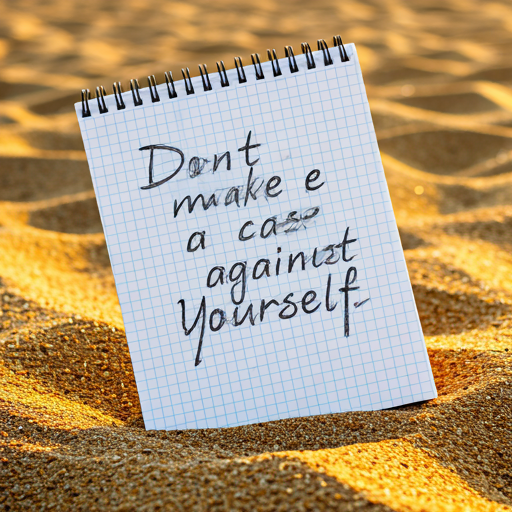 Dont
make e
a case
against
Yourself.